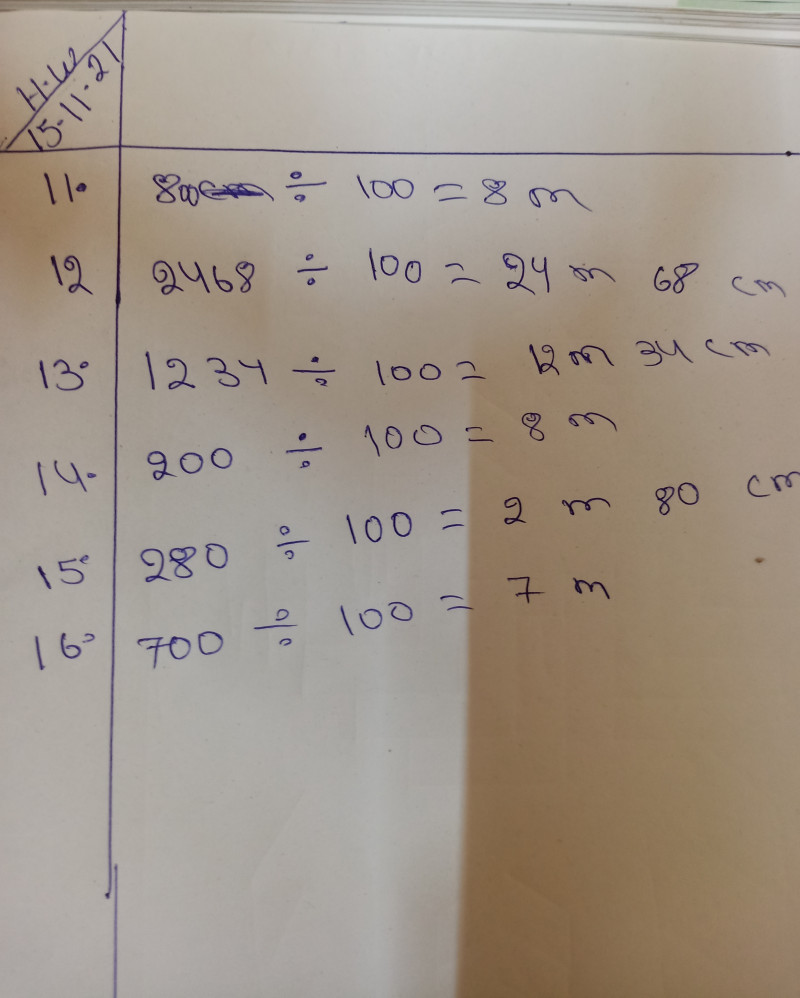 H.W
15.11.21
11. 800 ÷ 100 = 8 m
12 2468 ÷ 100 = 24 m 68 cm
13. 1234 ÷ 100 = 12 m 34 cm
14. 200 ÷ 100 = 8 m
15. 280 ÷ 100 = 2 m 80 cm
16. 700 ÷ 100 = 7 m